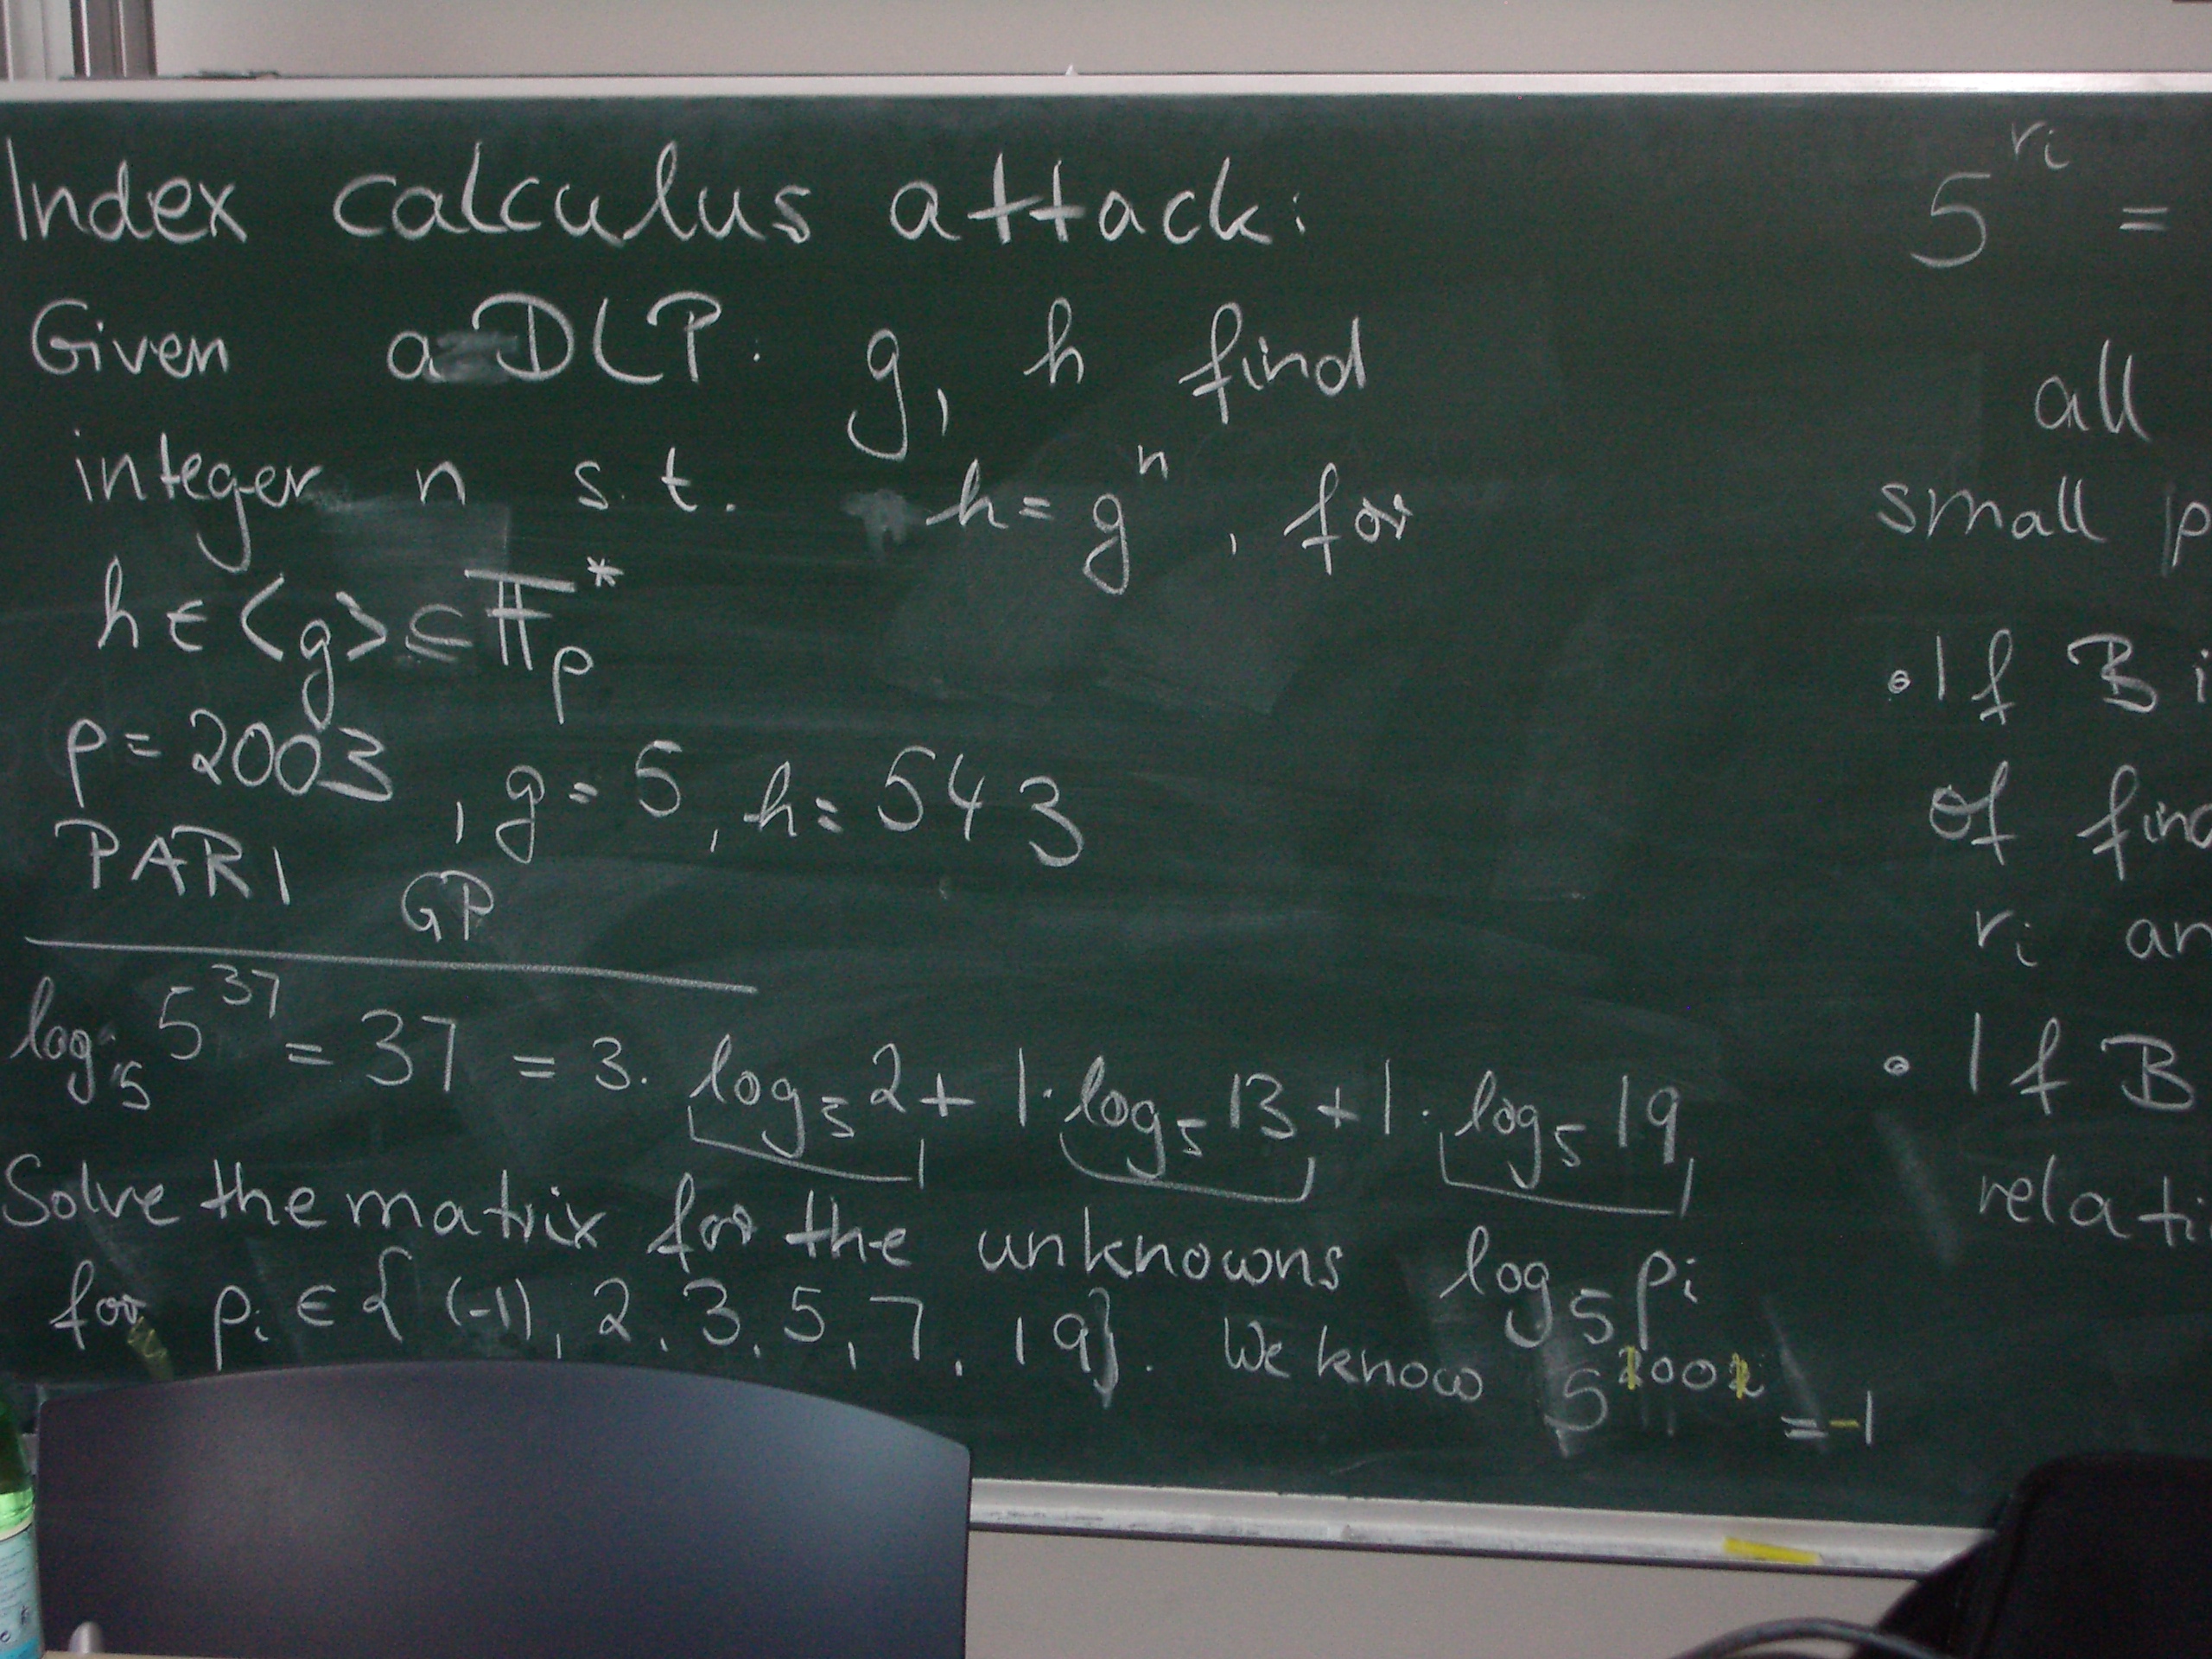 Index calculus attack:
Given a DLP. g, h find
integer n s.t. h = g^n, for
h ∈ <g> ⊆ F_p^*
p = 2003, g = 5, h = 543
PARI GP
log_5 5^37 = 37 = 3. log_5 2 + 1. log_5 13 + 1. log_5 19
Solve the matrix for the unknowns log_5 pi
for pi ∈ { (-1), 2, 3, 5, 7, 19}. We know 5^1001 = -1
5^ri =
all
small p
• If B i
of find
ri an
• If B
relati